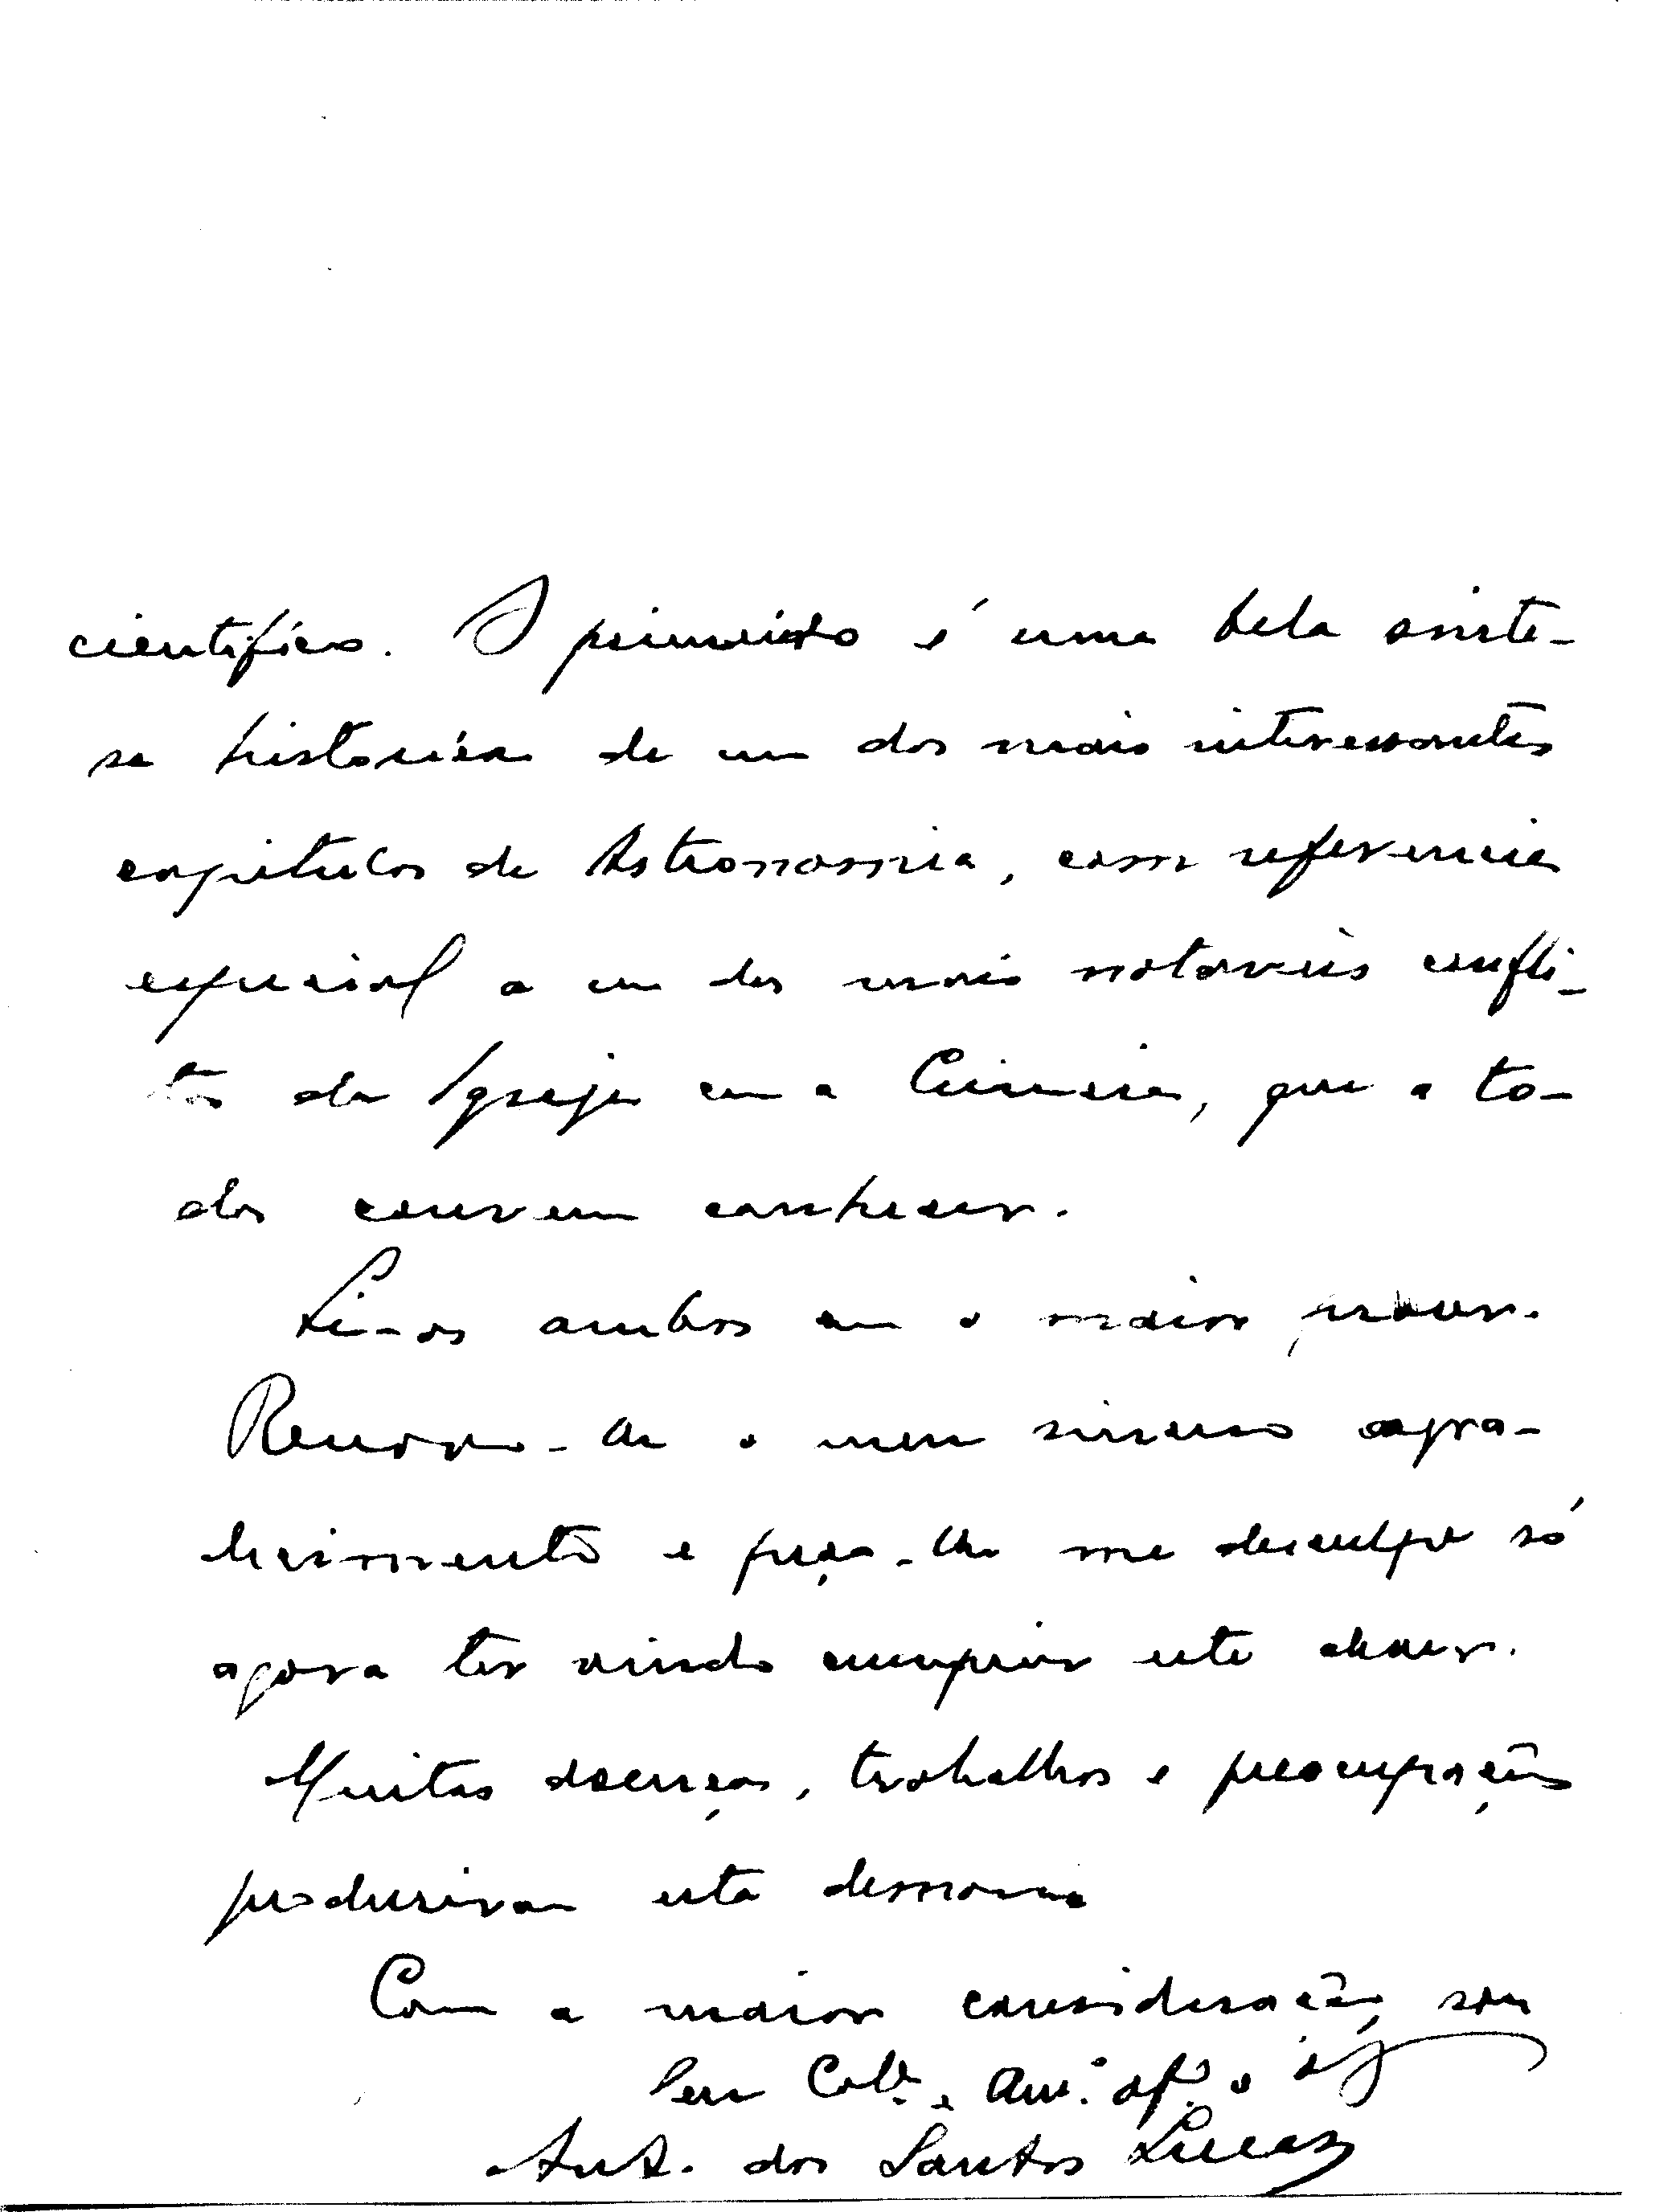 cientifico. O primeiro é uma bela sinte-
se historica de um dos mais interessantes
capitulos da Astronomia, com referencia
especial a um dos mais notaveis confli-
tos da Igreja com a Ciencia, que a to-
dos convem conhecer.
Li-os ambos com o maior prazer.
Renovo-lhe o meu sincero agra-
decimento e peço-lhe me desculpe só
agora ter vindo cumprir este dever.
Muitas doenças, trabalhos e preocupações
produziram esta demora
Com a maior consideração sou
Seu Colª. e Amº. afº. e
Antº. dos Santos Lucas